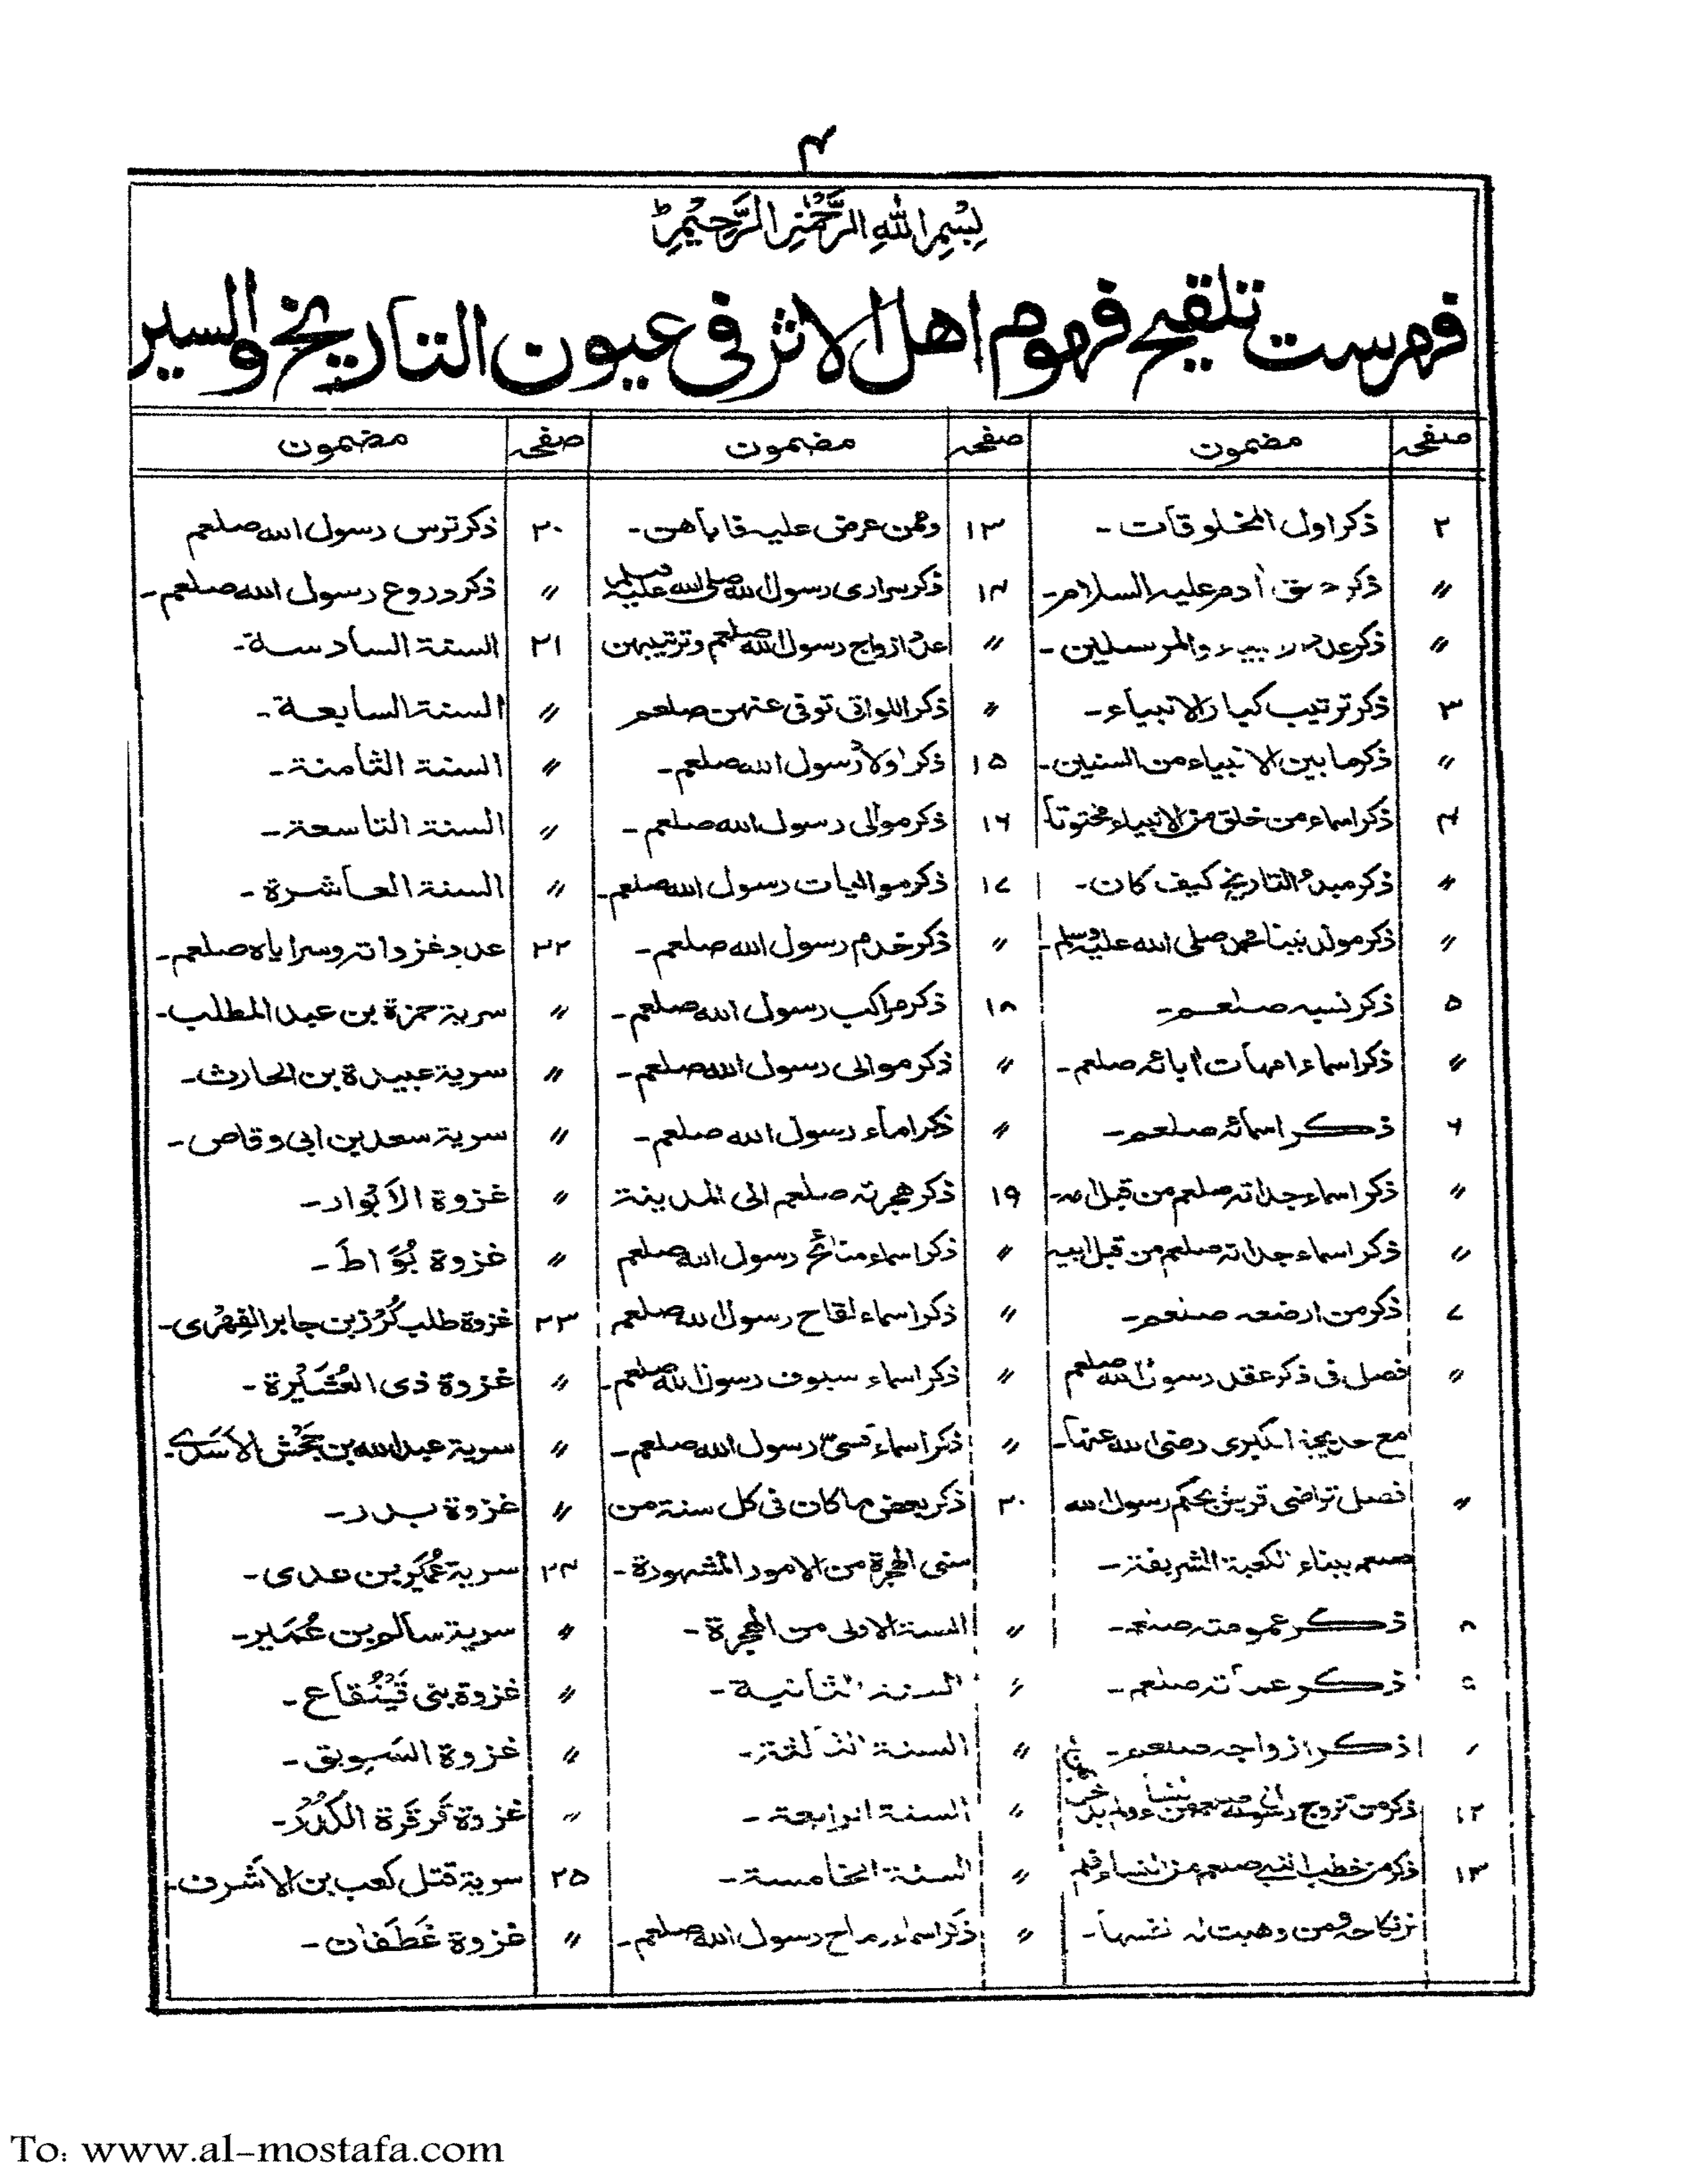 ۴
بِسْمِ اللهِ الرَّحْمٰنِ الرَّحِيْمِ
فهرست تلقيح فهوم اهل الاثر فى عيون التاريخ والسير
صفحه مضمون صفحه مضمون صفحه مضمون
۲ ذكر اول المخلوقات - ۱۳ وممن عرض عليه فاباهن - ۲۰ ذكر ترس رسول الله صلعم
〃 ذكر خلق أدم عليه السلام - ۱۴ ذكر سرارى رسول الله صلى الله عليه وسلم 〃 ذكر دروع رسول الله صلعم -
〃 ذكر عدد الانبياء والمرسلين - 〃 عدد ازواج رسول الله صلعم وترتيبهن ۲۱ السنة السادسة -
۳ ذكر ترتيب كبار الانبياء - 〃 ذكر اللواتى توفى عنهن صلعم 〃 السنة السابعة -
〃 ذكر ما بين الانبياء من السنين - ۱۵ ذكر اولاد رسول الله صلعم - 〃 السنة الثامنة -
۴ ذكر اسماء من خلق من الانبياء مختوناً ۱۶ ذكر موالى رسول الله صلعم - 〃 السنة التاسعة -
〃 ذكر مبدء التاريخ كيف كان - ۱۷ ذكر مواليات رسول الله صلعم - 〃 السنة العاشرة -
〃 ذكر مولد نبينا محمد صلى الله عليه وسلم - 〃 ذكر خدم رسول الله صلعم - ۲۲ عدد غزواته وسراياه صلعم -
۵ ذكر نسبه صلعم - ۱۸ ذكر مراكب رسول الله صلعم - 〃 سرية حمزة بن عبد المطلب -
〃 ذكر اسماء امهات أبائه صلعم - 〃 ذكر موالى رسول الله صلعم - 〃 سرية عبيدة بن الحارث -
۶ ذكر اسمائه صلعم - 〃 ذكر اماء رسول الله صلعم - 〃 سرية سعد بن ابى وقاص -
〃 ذكر اسماء جداته صلعم من قبل امه - ۱۹ ذكر هجرته صلعم الى المدينة 〃 غزوة الاَبْواء -
〃 ذكر اسماء جداته صلعم من قبل ابيه 〃 ذكر اسماء منائح رسول الله صلعم 〃 غزوة بُوَاطَ -
۷ ذكر من ارضعه صلعم - 〃 ذكر اسماء لقاح رسول الله صلعم ۲۳ غزوة طلب كُرْز بن جابر الفِهْرى -
〃 فصل فى ذكر عقد رسول الله صلعم 〃 ذكر اسماء سيوف رسول الله صلعم - 〃 غزوة ذى العُشَيْرة -
مع خديجة الكبرى رضى الله عنها - 〃 ذكر اسماء قسىّ رسول الله صلعم - 〃 سرية عبد الله بن جَحْش الاَسَدى -
〃 فصل تراضى قريش بحكم رسول الله ۲۰ ذكر بعض ما كان فى كل سنة من 〃 غزوة بدر -
صلعم ببناء الكعبة الشريفة - سنى الهجرة من الامور المشهورة - ۲۴ سرية عُمَيْر بن عدى -
۸ ذكر عمومته صلعم - 〃 السنة الاولى من الهجرة - 〃 سرية سالم بن عُمَير -
۹ ذكر عماته صلعم - 〃 السنة الثانية - 〃 غزوة بنى قَيْنُقاع -
ذكر ازواجه صلعم - 〃 السنة الثالثة - 〃 غزوة السَّوِيق -
۱۲ ذكر من تزوج رسول الله صلعم من 〃 السنة الرابعة - 〃 غزوة قَرقَرة الكُدْر -
۱۳ ذكر من خطب النبى صلعم من النساء فلم 〃 السنة الخامسة - ۲۵ سرية قتل كعب بن الاشرف -
نكاحه ومن وهبت له نفسها - 〃 ذكر اسماء رماح رسول الله صلعم - 〃 غزوة غَطَفان -
To: www.al-mostafa.com